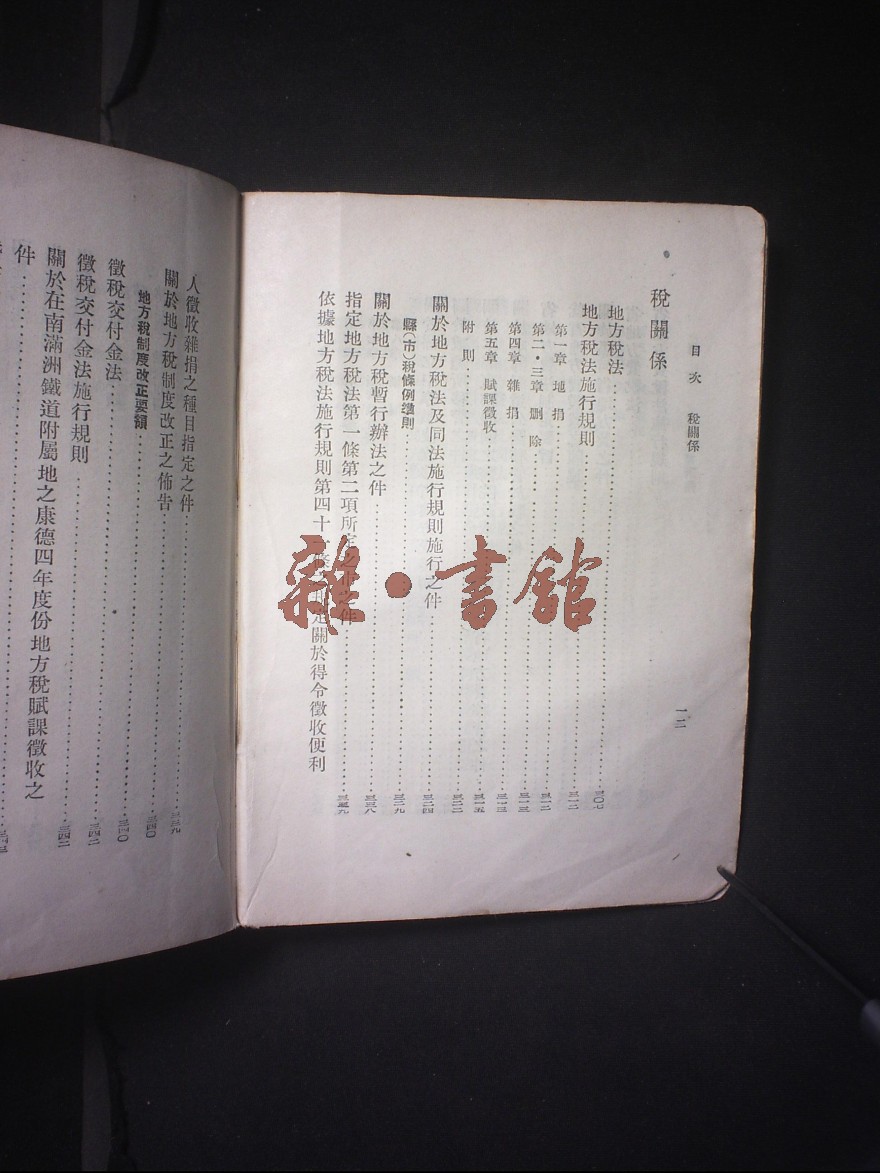 目次 稅關係
一二
稅關係
地方稅法……三〇七
地方稅法施行規則……三一二
第一章 地捐……三一二
第二・三章 刪除……三一三
第四章 雜捐……三一三
第五章 賦課徵收……三一五
附則……三二二
關於地方稅法及同法施行規則施行之件……三二四
縣(市)稅條例準則……三二九
關於地方稅暫行辦法之件……三三八
指定地方稅法第一條第二項所定
件……三三九
依據地方稅法施行規則第四十
關於得令徵收便利
人徵收雜捐之種目指定之件……三三九
關於地方稅制度改正之佈告……三四〇
地方稅制度改正要領……三四〇
徵稅交付金法……三四二
徵稅交付金法施行規則……三四二
關於在南滿洲鐵道附屬地之康德四年度份地方稅賦課徵收之
件
雜・書館